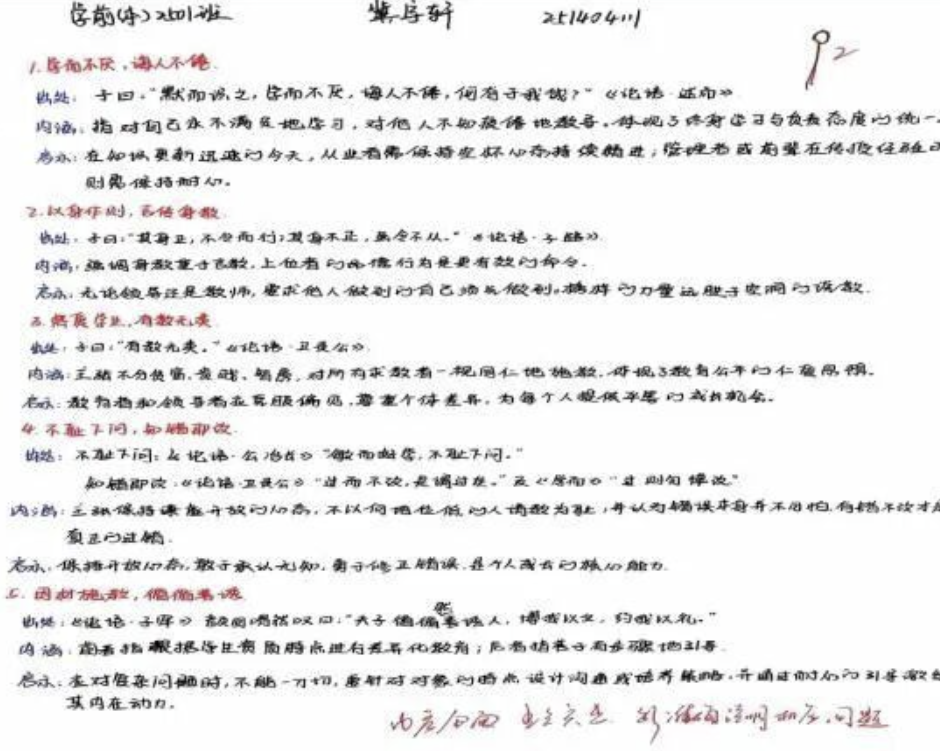 学前(本)2501班 冀彦轩 251404111
1.学而不厌,诲人不倦.
出处: 子曰:"默而识之,学而不厌,诲人不倦,何有于我哉?"《论语·述而》
内涵: 指对自己永不满足地学习,对他人不知疲倦地教导。体现了终身学习与负责态度的统一。
启示: 在知识更新迅速的今天,从业者需保持空杯心态持续精进;管理者或前辈在传授经验时
则需保持耐心。
2.以身作则,言传身教.
出处: 子曰:"其身正,不令而行;其身不正,虽令不从。"《论语·子路》
内涵: 强调身教重于言教,上位者的品德行为是更有效的命令。
启示: 无论领导还是教师,要求他人做到的自己须先做到。榜样的力量远胜于空洞的说教.
3. 有教无类
出处: 子曰:"有教无类。"《论语·卫灵公》
内涵: 主张不分贫富、贵贱、智愚,对所有求教者一视同仁地施教,体现了教育公平的仁爱思想。
启示: 教育者和领导者应克服偏见,尊重个体差异,为每个人提供平等的成长机会。
4.不耻下问,知错即改.
出处: 不耻下问:《论语·公冶长》"敏而好学,不耻下问。"
知错即改:《论语·卫灵公》"过而不改,是谓过矣。"及《学而》"过则勿惮改"
内涵: 主张保持谦虚开放的心态,不以向地位低的人请教为耻,并认为错误本身并不可怕,有错不改才是
真正的过错.
启示: 保持开放心态,敢于承认无知,勇于修正错误,是个人成长的核心能力.
5.因材施教,循循善诱
出处:《论语·子罕》颜回喟然叹曰:"夫子循循然善诱人,博我以文,约我以礼。"
内涵: 前者指根据学生资质特点进行差异化教育;后者指善于有步骤地引导.
启示: 应对复杂问题时,不能一刀切,要针对对象的特点设计沟通或培养策略,并通过耐心的引导激发
其内在动力.
内容全面